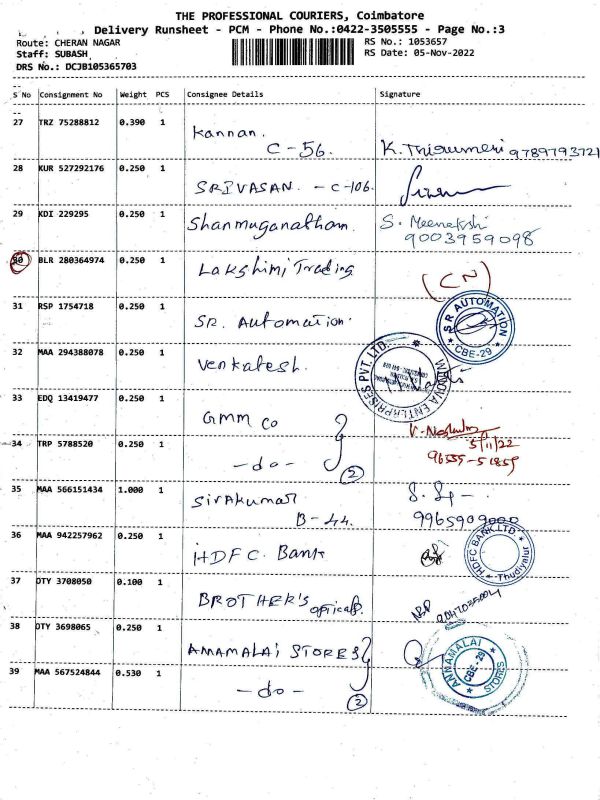 THE PROFESSIONAL COURIERS, Coimbatore
Delivery Runsheet - PCM - Phone No.:0422-3505555 - Page No.:3
Route: CHERAN NAGAR
RS No.: 1053657
Staff: SUBASH
RS Date: 05-Nov-2022
DRS No.: DCJB105365703
S No Consignment No Weight PCS Consignee Details Signature
27 TRZ 75288812 0.390 1 Kannan.
C-56. K. Thirumeni 9789793721
28 KUR 527292176 0.250 1 SRIVASAN - C-106.
29 KDI 229295 0.250 1 Shanmuganatham. S. Meenakshi
9003959098
30 BLR 280364974 0.250 1 Lakshimi Trading (CN)
31 RSP 1754718 0.250 1 SR. Automation.
S R AUTOMATION
* CBE-29 *
32 MAA 294388078 0.250 1 Venkatesh.
ENTERPRISES PVT. LTD.
33 EDQ 13419477 0.250 1 GMM Co
5/11/22
34 TRP 5788520 0.250 1 -do- 2
35 MAA 566151434 1.000 1 Sivakumar
B-44. 9965909000
36 MAA 942257962 0.250 1 HDFC. Bank
HDFC BANK LTD.
Thudiyalur
37 OTY 3708050 0.100 1 BROTHER'S opticals.
38 OTY 3698065 0.250 1 ANAMALAI STORES
ANNAMALAI
CBE-29
STORES
39 MAA 567524844 0.530 1 -do- 2